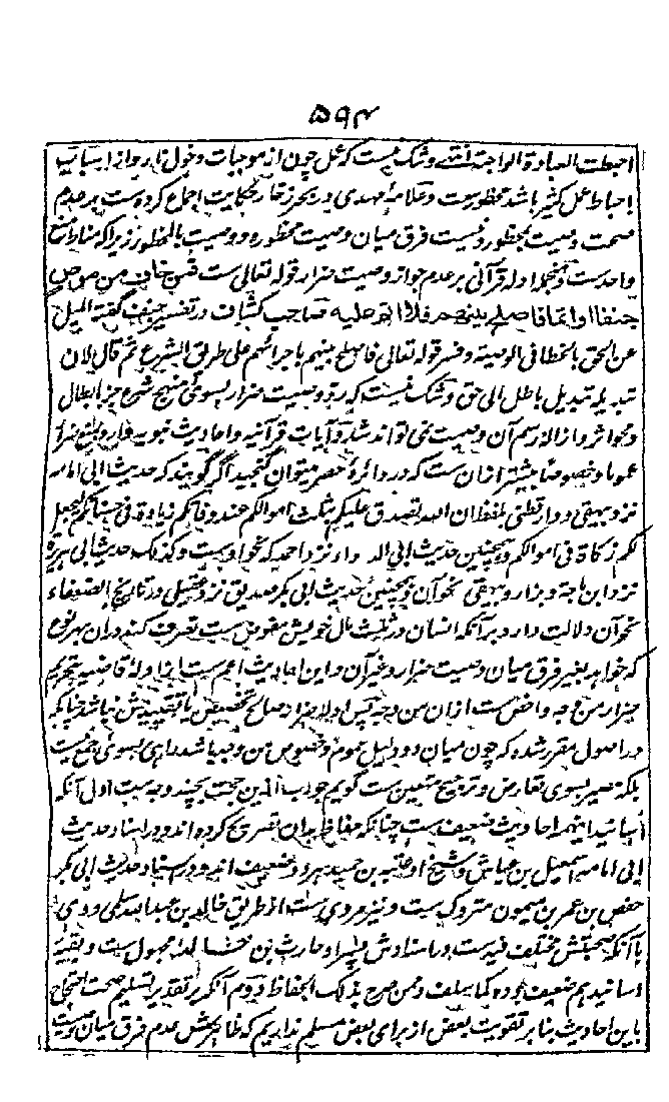 ۵۹۴
احبطت العبادة الواجبة انتهے و شک نیست که عمل چون از موجبات دخول نار و از اسباب
احباط عمل کثیر باشد محظور ست و علامهٔ مهدی در بحر زخار حکایت اجماع کرده ست بر عدم
صحت وصیت بمحظور و نیست فرق میان وصیت محظوره و وصیت بالمحظور زیرا که مناط منع
واحد ست و منجمله ادلهٔ قرآنی بر عدم جواز وصیت ضرار قوله تعالی ست فمن خاف من موص
جنفا او اثما فاصلح بينهم فلا اثم عليه صاحب کشاف در تفسیر جنف گفته المیل
عن الحق بالخطا فی الوصیة و فسر قوله تعالی فاصلح بینهم باجرائهم علی طریق الشرع ثم قال لان
تبدیله تبدیل باطل الی حق و شک نیست که رد وصیت ضرار بسوی منهج شرع جز ابطال
و محو اثر و ازالهٔ رسم آن وصیت نمی تواند شد و آیات قرآنیه و احادیث نبویه قاره بمنع ضرار
عموما و خصوصا بیشتر ازان ست که در دائرهٔ حصر میتوان گنجید اگر گویند که حدیث ابی امامه
نزد بیهقی و دارقطنی بلفظ ان الله تصدق علیکم بثلث اموالکم عند وفاتکم زیادة فی حسناتکم لیجعل
لکم زکاة فی اموالکم و همچنین حدیث ابی الدرداء نزد احمد که نحو اوست و کذلک حدیث ابی هریره
نزد ابن ماجة و بزار و بیهقی نحو آن و همچنین حدیث ابی بکر صدیق نزد عقیلی در تاریخ الضعفاء
نحو آن دلالت دارد بر آنکه انسان در ثلث مال خویش مفوض ست تصرف کند دران بهر نوع
که خواهد بغیر فرق میان وصیت ضرار و غیر آن و این احادیث اعم ست از ادلهٔ قاضیه بتحریم
ضرار من وجه و اخص ست ازان من وجه پس ادلهٔ ضرار صالح تخصیص یا تقییدش نباشد چنانکه
در اصول مقرر شده که چون میان دو دلیل عموم و خصوص من وجه باشد راهی بسوی جمع نیست
بلکه مصیر بسوی تعارض و ترجیح متعین ست گویم جواب ازین حجت بچند وجه ست اول آنکه
اسانید این احادیث ضعیف ست چنانکه حفاظ بدان تصریح کرده اند و در اسناد حدیث
ابی امامه اسمعیل بن عیاش و شیخ او عتبه بن حمید هر دو ضعیف اند و در اسناد حدیث ابی بکر
حفص بن عمر بن میمون متروک ست و نیز مروی ست از طریق خالد بن عبدالله سلمی و وی
با آنکه صحبتش مختلف فیه ست در اسنادش پسر او حارث بن خالد مجهول ست و بقیه
اسانید هم ضعیف بوده کما سلف و ممن صرح بذلک الحفاظ دوم آنکه بر تقدیر تسلیم صحت احتجاج
باین احادیث بنا بر تقویت بعض از برای بعض مسلم نداریم که ظاهرش عدم فرق میان وصیت